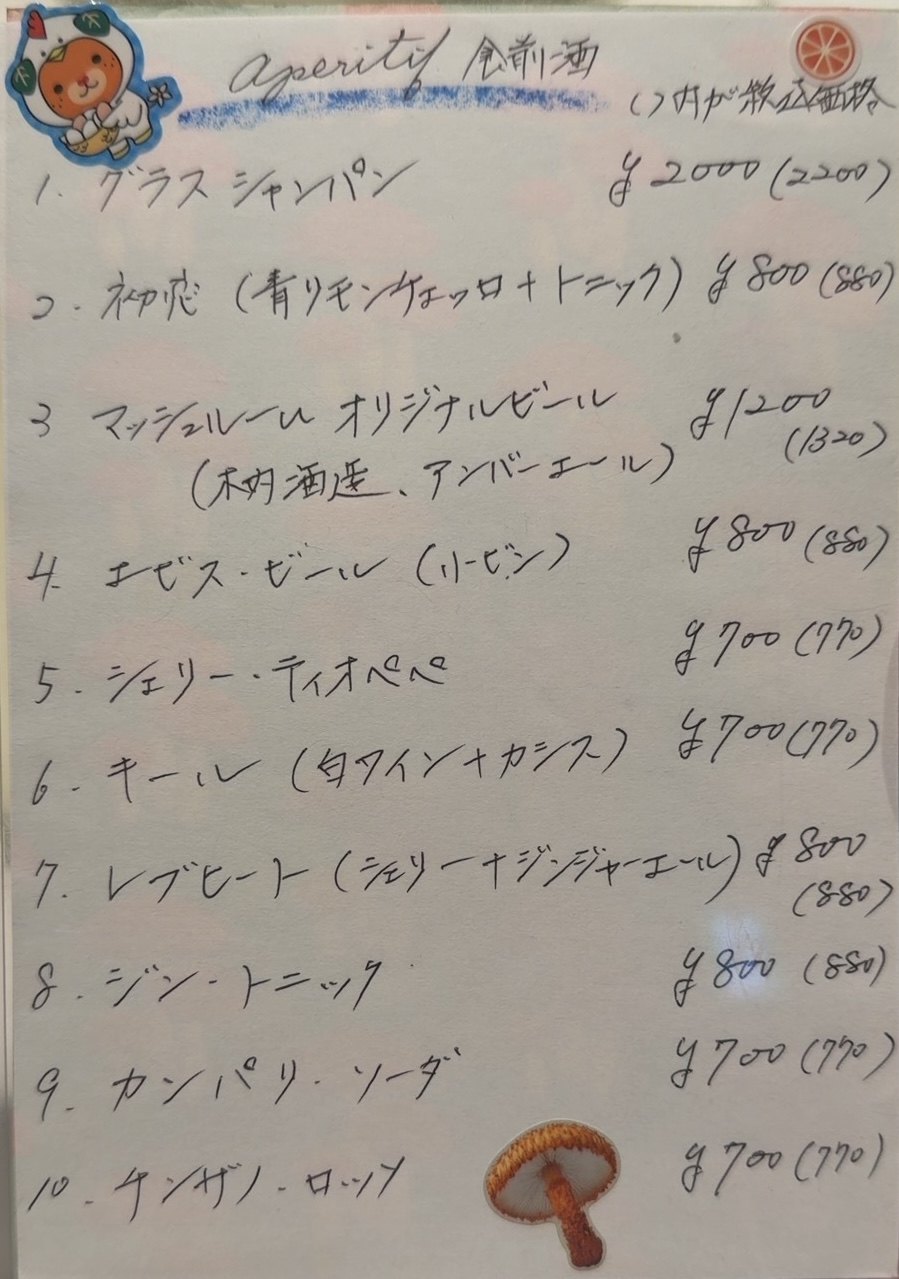 aperitif 食前酒
( )内が税込価格
1. グラスシャンパン ¥2000(2200)
2. 初恋(青リモンチェッロ+トニック) ¥800(880)
3 マッシュルーム オリジナルビール ¥1200
(1320)
(木内酒造、アンバーエール)
4. エビス・ビール(小ビン) ¥800(880)
5. シェリー・ティオペペ ¥700(770)
6. キール(白ワイン+カシス) ¥700(770)
7. レブヒート(シェリー+ジンジャーエール) ¥800
(880)
8. ジン・トニック ¥800(880)
9. カンパリ・ソーダ ¥700(770)
10. チンザノ・ロッソ ¥700(770)